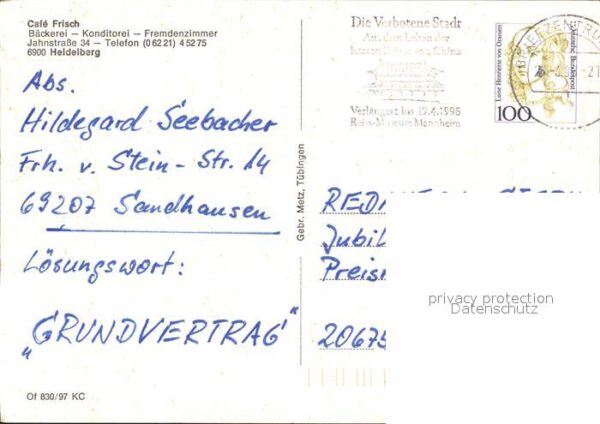 Café Frisch
Bäckerei – Konditorei – Fremdenzimmer
Jahnstraße 34 – Telefon (06221) 45275
6900 Heidelberg
Die Verbotene Stadt
Aus dem Leben der
letzten China
Verlängert bis 19.4.1998
Reiss-Museum Mannheim
BRIEFZENTRU
Luise Henriette von Oranien
Deutsche Bundespost
100
Abs.
Hildegard Seebacher
Frh. v. Stein-Str. 14
69207 Sandhausen
Lösungswort:
„GRUNDVERTRAG"
Gebr. Metz, Tübingen
Jubil
Preis
20675
privacy protection
Datenschutz
Of 830/97 KC